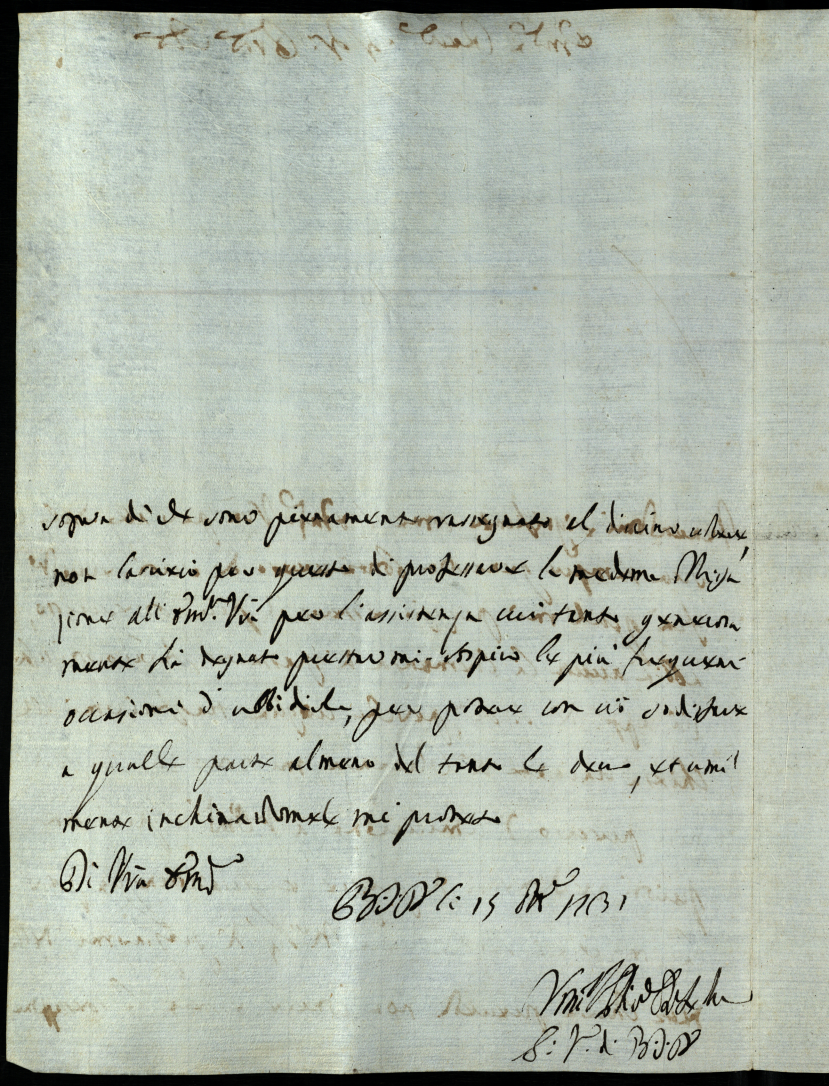 sopra di che sono pienamente rassegnato al divino volere,
non lascierò per questo di professare la medema obliga
zione all' Em.ª V̄ra per l'assistenza cui tanto generosa
mente hà degnato prestarmi. Sospiro le più frequenti
occasioni d'ubbidirla, per potere con ciò sodisfare
a quella parte almeno del tanto le devo, et umil
mente inchinandomele mi protesto
Di V̄ra Em.ª
li 15 1731